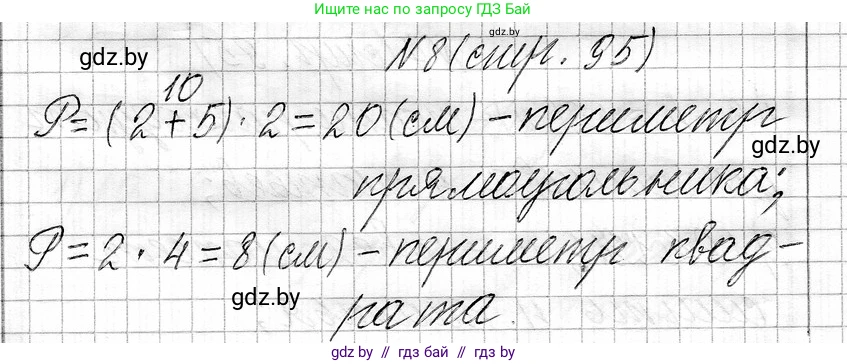 Ищите нас по запросу ГДЗ Бай
gdz.by
gdz.by
N 8 (стр. 95)
10
P = (2 + 5) · 2 = 20 (см) – периметр
gdz.by
прямоугольника;
P = 2 · 4 = 8 (см) – периметр квад-
gdz.by
рата.
gdz.by // гдз бай // гдз by